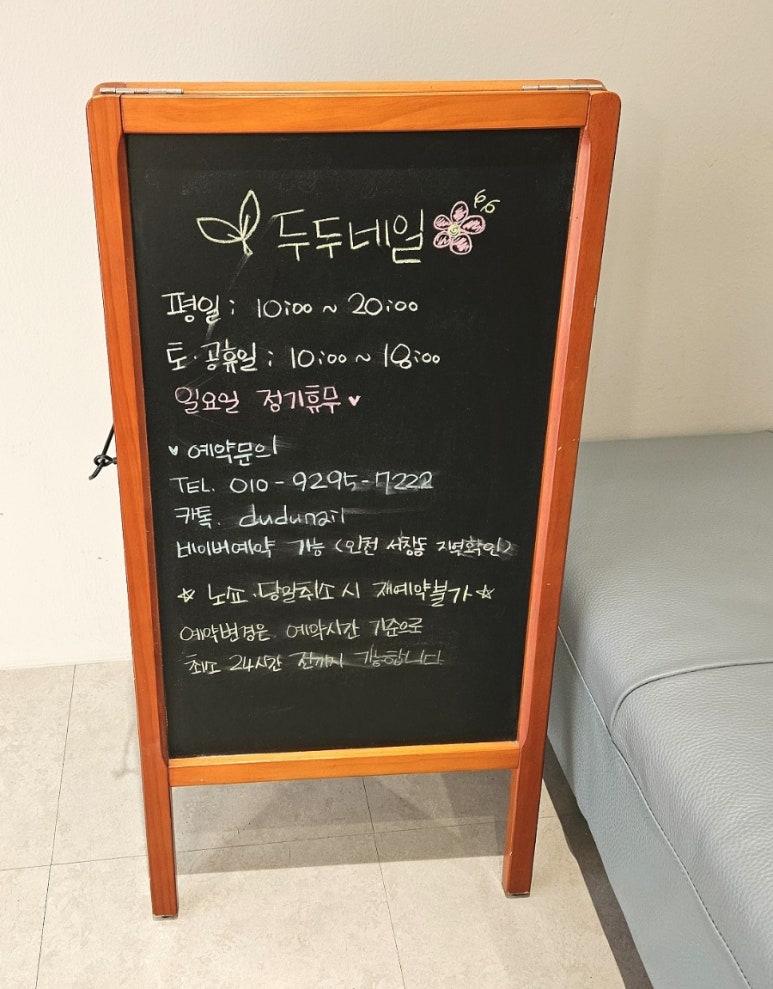 두두네일
평일 : 10:00 ~ 20:00
토·공휴일 : 10:00 ~ 18:00
일요일 정기휴무 ♥
♥ 예약문의
TEL. 010-9295-7222
카톡. dudunail
네이버예약 가능 (인천 서창동 지역확인)
☆ 노쇼·당일취소 시 재예약불가 ☆
예약변경은 예약시간 기준으로
최소 24시간 전까지 가능합니다